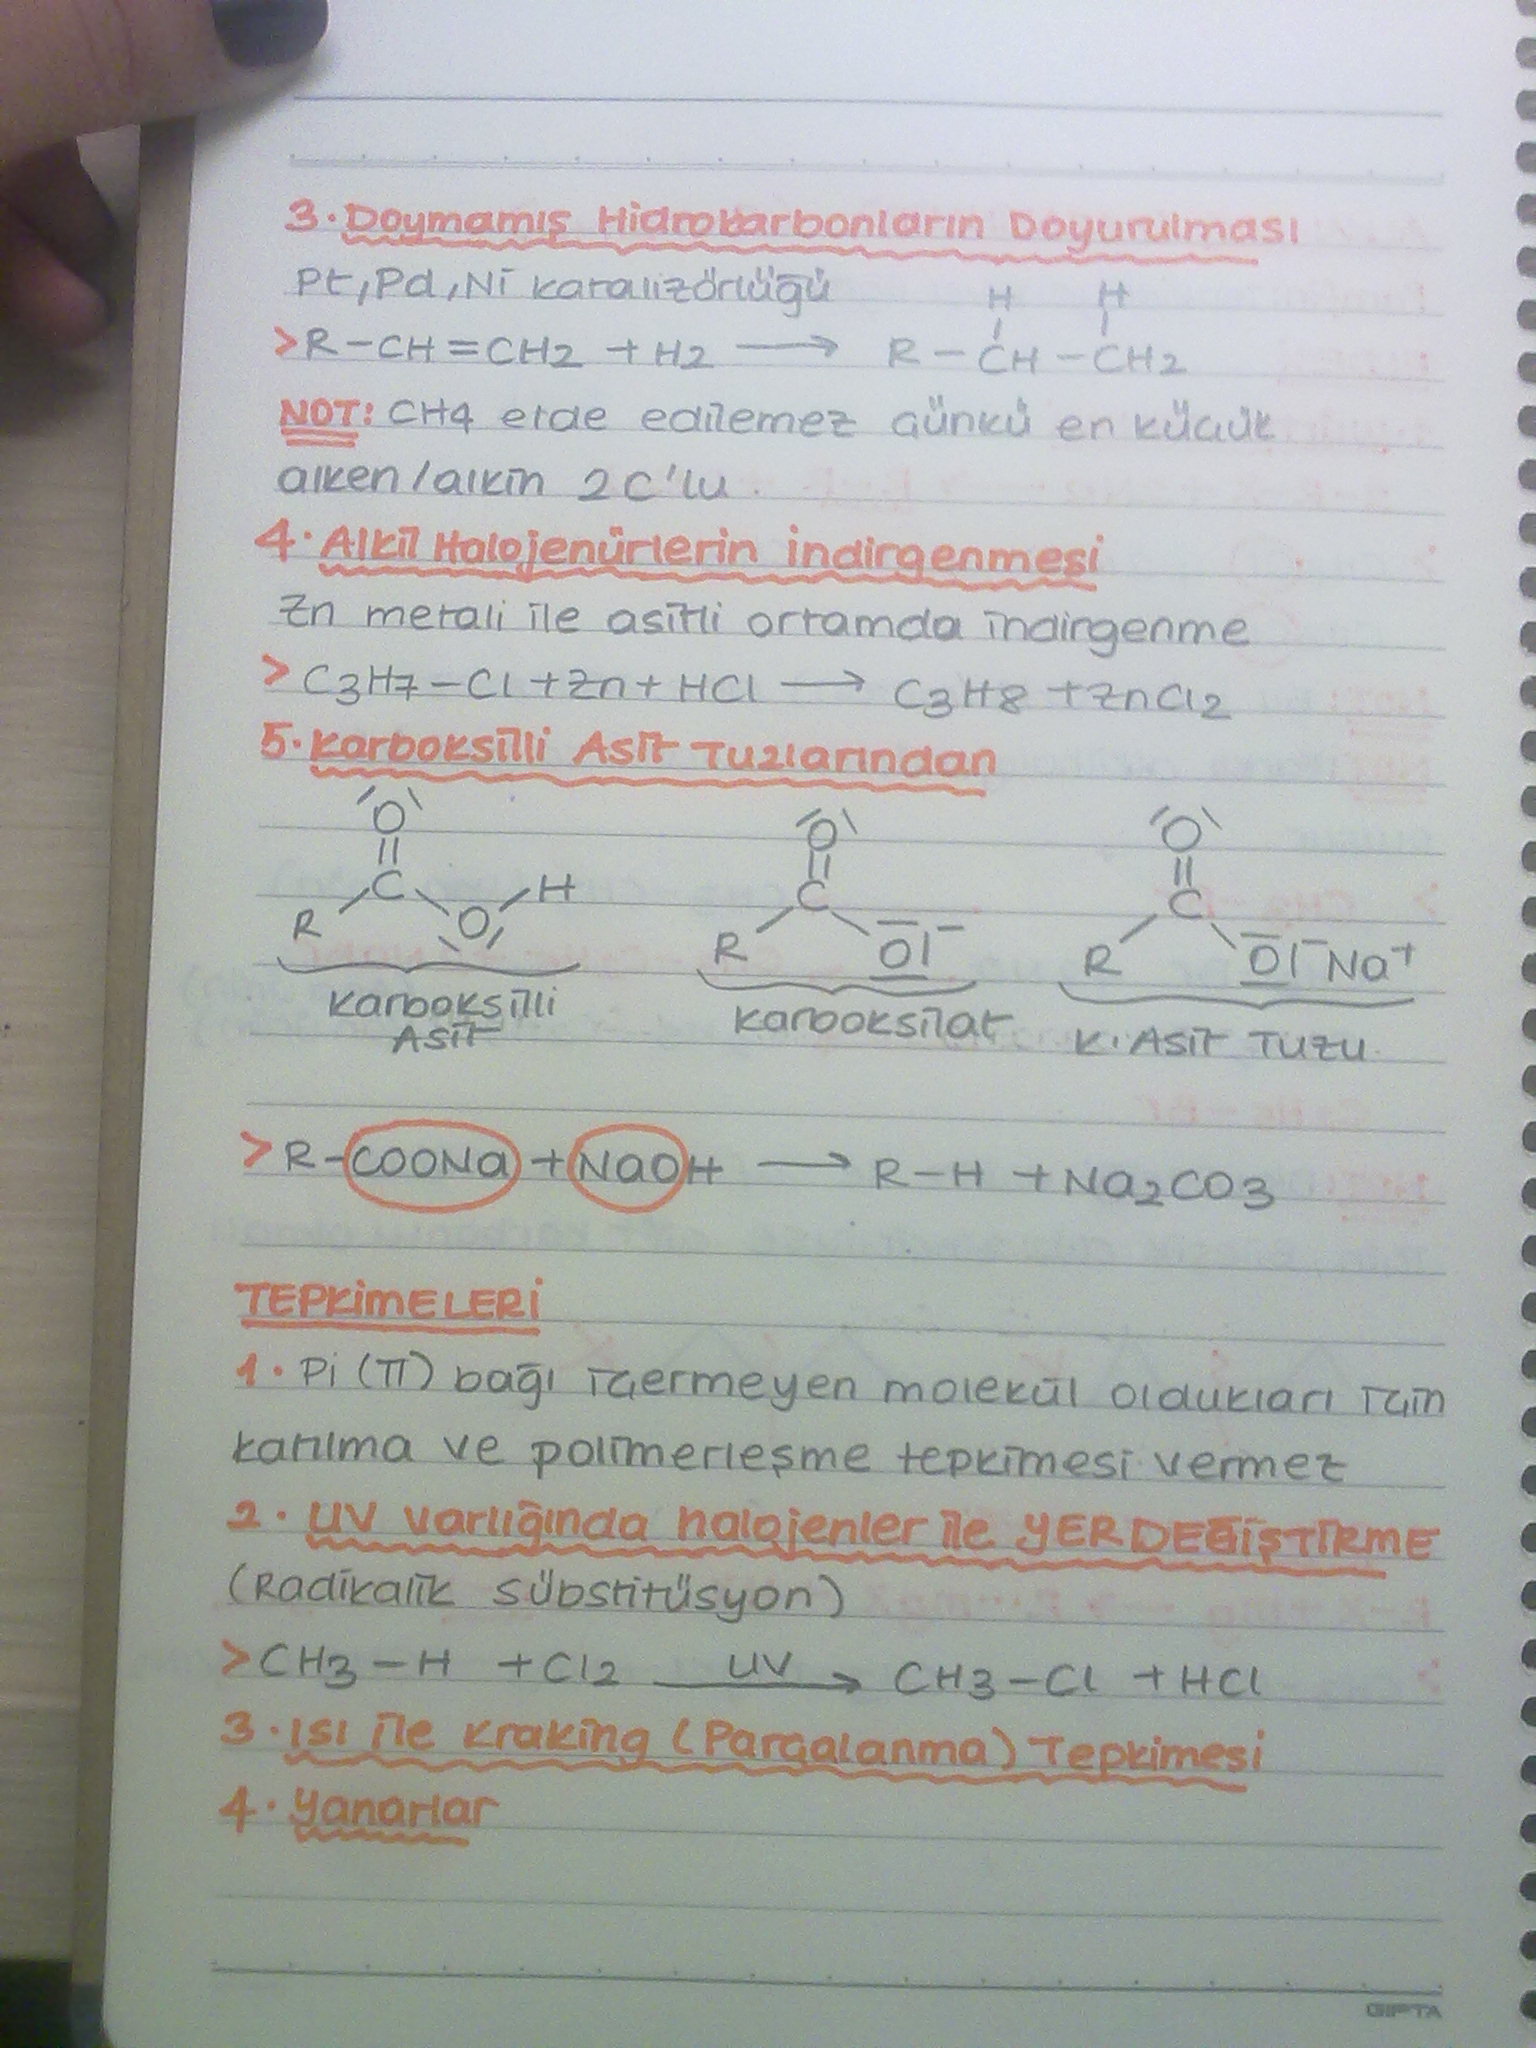 3. Doymamış Hidrokarbonların Doyurulması
Pt, Pd, Ni katalizörlüğü
H H
> R-CH=CH2 + H2 → R-CH-CH2
NOT: CH4 elde edilemez çünkü en küçük
alken/alkin 2C'lu.
4. Alkil Halojenürlerin indirgenmesi
Zn metali ile asitli ortamda indirgenme
> C3H7-Cl + Zn + HCl → C3H8 + ZnCl2
5. Karboksilli Asit Tuzlarından
O O O
C H C C
R O R O⁻ R O⁻Na⁺
Karboksilli Karboksilat K. Asit Tuzu
Asit
> R-COONa + NaOH → R-H + Na2CO3
TEPKİMELERİ
1. Pi (π) bağı içermeyen molekül oldukları için
katılma ve polimerleşme tepkimesi vermez
2. UV varlığında halojenler ile YER DEĞİŞTİRME
(Radikalik sübstitüsyon)
> CH3-H + Cl2 UV→ CH3-Cl + HCl
3. Isı ile Kraking (Parçalanma) Tepkimesi
4. Yanarlar
GIPTA